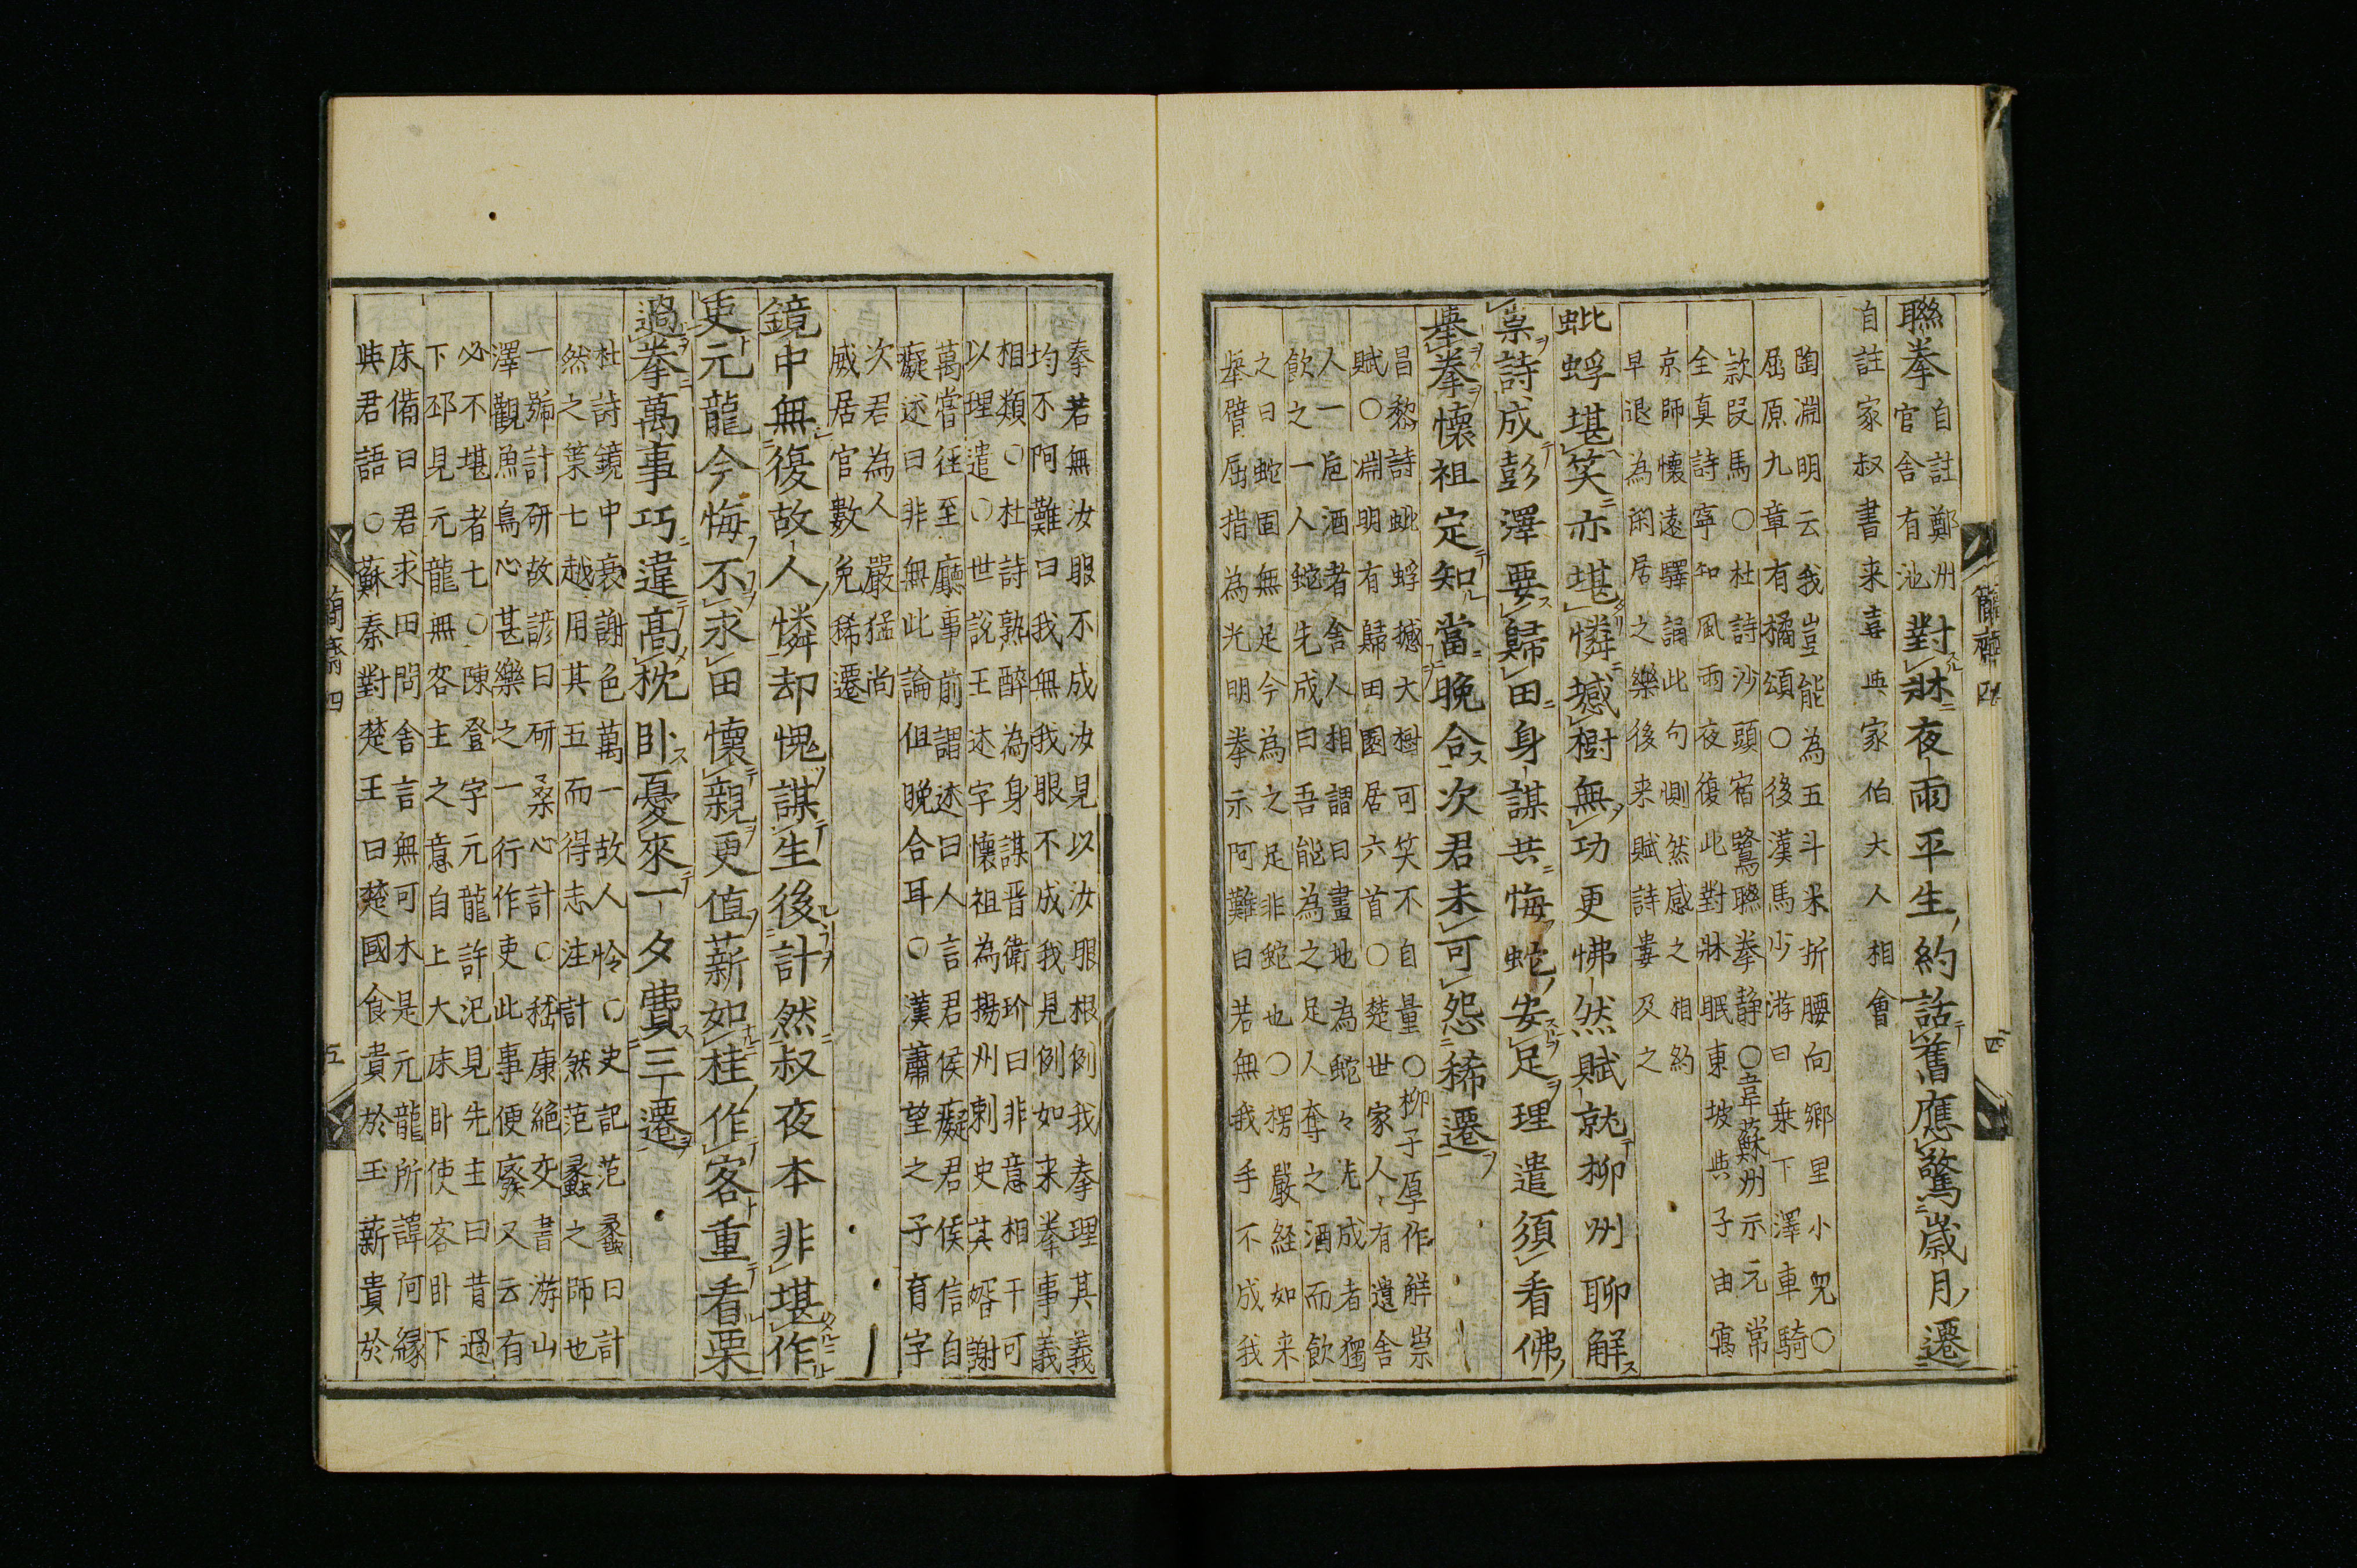 聯拳
自註鄭州
官舍有池
對牀夜雨平生約話舊應驚歲月遷
自註家叔書来喜與家伯大人相會
陶淵明云我豈能為五斗米折腰向鄉里小兒○
屈原九章有橘頌○後漢馬少游曰乗下澤車騎
款段馬○杜詩沙頭宿鷺聯拳静○韋蘇州示元常
全真詩寧知風雨夜復此對牀眠東坡與子由寓
京師懷遠驛誦此句惻然感之相約
早退為閑居之樂後来賦詩婁及之
蚍蜉堪笑亦堪憐撼樹無功更怫然賦就柳州聊解
祟詩成彭澤要歸田身謀共悔蛇安足理遣須看佛
舉拳懷祖定知當晚合次君未可怨稀遷
昌黎詩蚍蜉撼大樹可笑不自量○柳子厚作解祟
賦○淵明有歸田園居六首○楚世家人有遺舍
人一巵酒者舍人相謂曰畫地為蛇々先成者獨
飲之一人蛇先成曰吾能為之足人奪之酒而飲
之曰蛇固無足今為之足非蛇也○楞嚴経如来
舉臂屈指為光明拳示阿難曰若無我手不成我
拳若無汝眼不成汝見以汝眼根例我拳理其義
均不阿難曰我無我眼不成我見例如来拳事義
相類○杜詩熟醉為身謀晋衛玠曰非意相干可
以理遣○世說王述字懷祖為揚州刺史其婿謝
萬嘗径至廳事前謂述曰人言君侯癡君侯信自
癡述曰非無此論但晚合耳○漢蕭望之子育字
次君為人嚴猛尚
威居官數免稀遷
鏡中無復故人憐却愧謀生後計然叔夜本非堪作
吏元龍今悔不求田懷親更值薪如桂作客重看栗
過拳萬事巧違高枕臥憂來一夕費三遷
杜詩鏡中衰謝色萬一故人怜○史記范蠡曰計
然之策七越用其五而得志注計然范蠡之師也
一号計研故諺曰研桑心計○嵇康絶交書游山
澤觀魚鳥心甚樂之一行作吏此事便廢又云有
必不堪者七○陳登字元龍許汜見先主曰昔過
下邳見元龍無客主之意自上大床臥使客臥下
床備曰君求田問舍言無可木是元龍所諱何緣
與君語○蘇秦對楚王曰楚國食貴於玉薪貴於
簡齋四
四
簡齋四
五